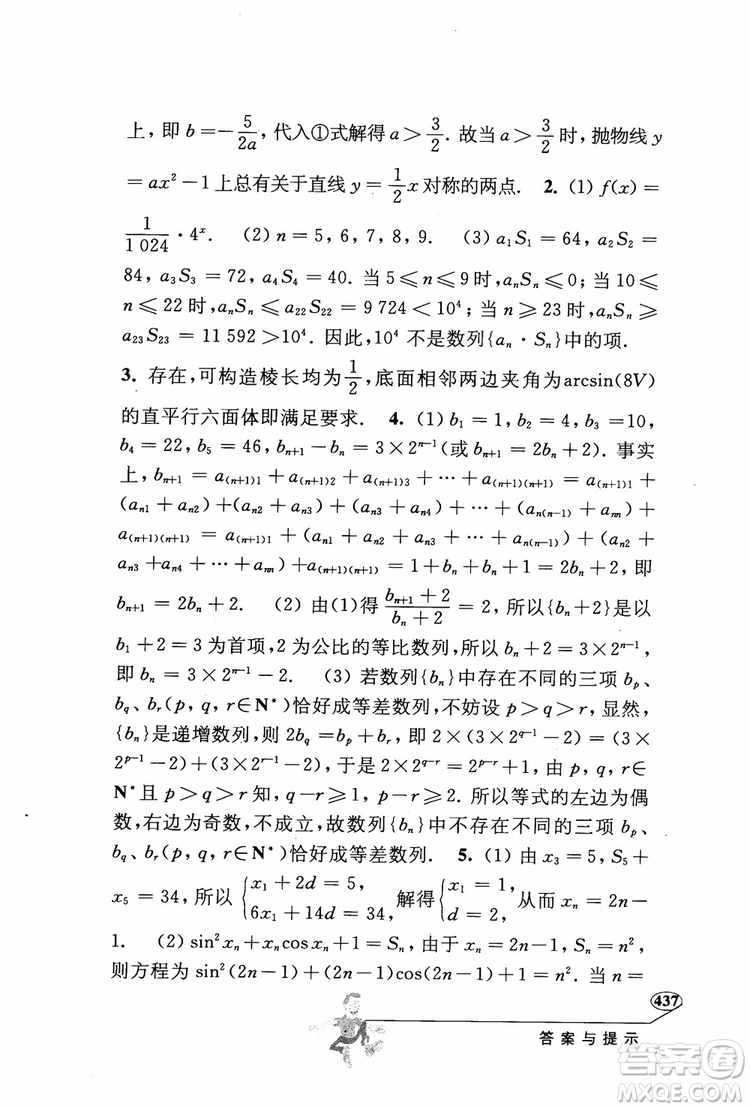 上，即 b = -5/(2a)，代入①式解得 a > 3/2. 故当 a > 3/2 时，抛物线 y
= ax² - 1 上总有关于直线 y = 1/2 x 对称的两点.　2. (1) f(x) =
1/1 024 · 4ˣ.　(2) n = 5, 6, 7, 8, 9.　(3) a₁S₁ = 64, a₂S₂ =
84, a₃S₃ = 72, a₄S₄ = 40. 当 5 ⩽ n ⩽ 9 时，aₙSₙ ⩽ 0；当 10 ⩽
n ⩽ 22 时，aₙSₙ ⩽ a₂₂S₂₂ = 9 724 < 10⁴；当 n ⩾ 23 时，aₙSₙ ⩾
a₂₃S₂₃ = 11 592 > 10⁴. 因此，10⁴ 不是数列{aₙ · Sₙ}中的项.
3. 存在，可构造棱长均为 1/2，底面相邻两边夹角为 arcsin(8V)
的直平行六面体即满足要求.　4. (1) b₁ = 1, b₂ = 4, b₃ = 10,
b₄ = 22, b₅ = 46, bₙ₊₁ - bₙ = 3 × 2ⁿ⁻¹ (或 bₙ₊₁ = 2bₙ + 2). 事实
上，bₙ₊₁ = a₍ₙ₊₁₎₁ + a₍ₙ₊₁₎₂ + a₍ₙ₊₁₎₃ + ⋯ + a₍ₙ₊₁₎₍ₙ₊₁₎ = a₍ₙ₊₁₎₁ +
(aₙ₁ + aₙ₂) + (aₙ₂ + aₙ₃) + (aₙ₃ + aₙ₄) + ⋯ + (aₙ₍ₙ₋₁₎ + aₙₙ) +
a₍ₙ₊₁₎₍ₙ₊₁₎ = a₍ₙ₊₁₎₁ + (aₙ₁ + aₙ₂ + aₙ₃ + ⋯ + aₙ₍ₙ₋₁₎) + (aₙ₂ +
aₙ₃ + aₙ₄ + ⋯ + aₙₙ) + a₍ₙ₊₁₎₍ₙ₊₁₎ = 1 + bₙ + bₙ + 1 = 2bₙ + 2，即
bₙ₊₁ = 2bₙ + 2.　(2) 由(1)得 (bₙ₊₁ + 2)/(bₙ + 2) = 2，所以{bₙ + 2}是以
b₁ + 2 = 3 为首项，2 为公比的等比数列，所以 bₙ + 2 = 3 × 2ⁿ⁻¹，
即 bₙ = 3 × 2ⁿ⁻¹ - 2.　(3) 若数列{bₙ}中存在不同的三项 b_p、
b_q、b_r(p, q, r ∈ N*)恰好成等差数列，不妨设 p > q > r，显然，
{bₙ}是递增数列，则 2b_q = b_p + b_r，即 2 × (3 × 2^(q-1) - 2) = (3 ×
2^(p-1) - 2) + (3 × 2^(r-1) - 2)，于是 2 × 2^(q-r) = 2^(p-r) + 1. 由 p, q, r ∈
N* 且 p > q > r 知，q - r ⩾ 1, p - r ⩾ 2. 所以等式的左边为偶
数，右边为奇数，不成立，故数列{bₙ}中不存在不同的三项 b_p、
b_q、b_r(p, q, r ∈ N*)恰好成等差数列.　5. (1) 由 x₃ = 5, S₅ +
x₅ = 34，所以 {x₁ + 2d = 5, 6x₁ + 14d = 34, 解得 {x₁ = 1, d = 2, 从而 xₙ = 2n -
1.　(2) sin²xₙ + xₙcosxₙ + 1 = Sₙ，由于 xₙ = 2n - 1, Sₙ = n²，
则方程为 sin²(2n - 1) + (2n - 1)cos(2n - 1) + 1 = n². 当 n =
437
答案与提示
答案圈
MXQE.COM